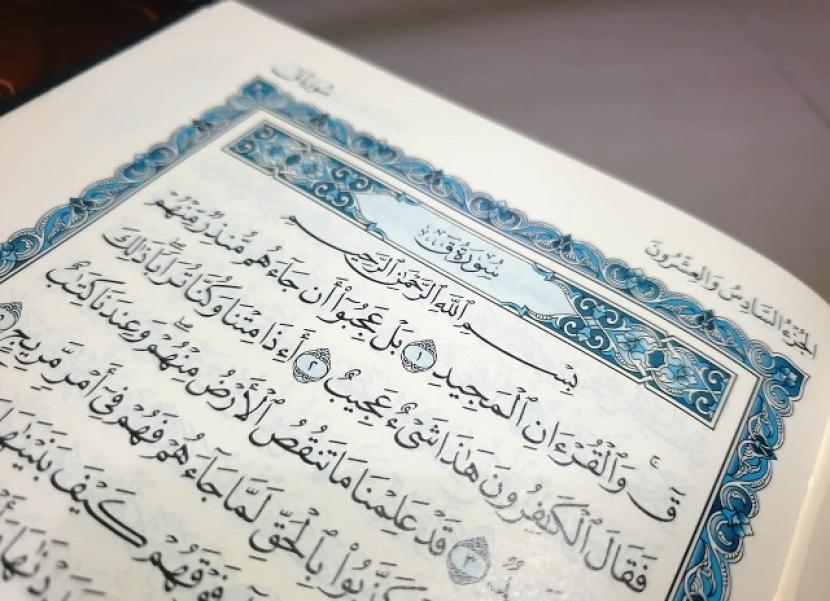 الجُزْءُ السَّادِسُ وَالعِشْرُونَ
سُورَةُ ق
سُورَةُ ق
بِسْمِ ٱللَّهِ ٱلرَّحْمَٰنِ ٱلرَّحِيمِ
قٓ وَٱلْقُرْءَانِ ٱلْمَجِيدِ ١ بَلْ عَجِبُوٓا۟ أَن جَآءَهُم مُّنذِرٌ مِّنْهُمْ
فَقَالَ ٱلْكَٰفِرُونَ هَٰذَا شَىْءٌ عَجِيبٌ ٢ أَءِذَا مِتْنَا وَكُنَّا تُرَابًا ۖ ذَٰلِكَ
٣ قَدْ عَلِمْنَا مَا تَنقُصُ ٱلْأَرْضُ مِنْهُمْ ۖ وَعِندَنَا كِتَٰبٌ
كَذَّبُوا۟ بِٱلْحَقِّ لَمَّا جَآءَهُمْ فَهُمْ فِىٓ أَمْرٍ مَّرِيجٍ
فَوْقَهُمْ كَيْفَ بَنَيْنَٰهَا